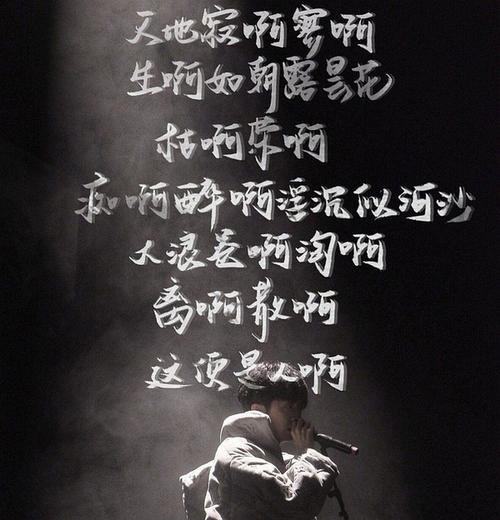 天地寂啊寥啊
生啊如朝露昙花
枯啊荣啊
痴啊醉啊浮沉似河沙
大浪卷啊淘啊
离啊散啊
这便是人啊